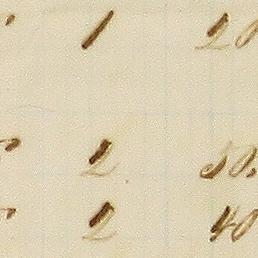 1 20
2 50
2 40